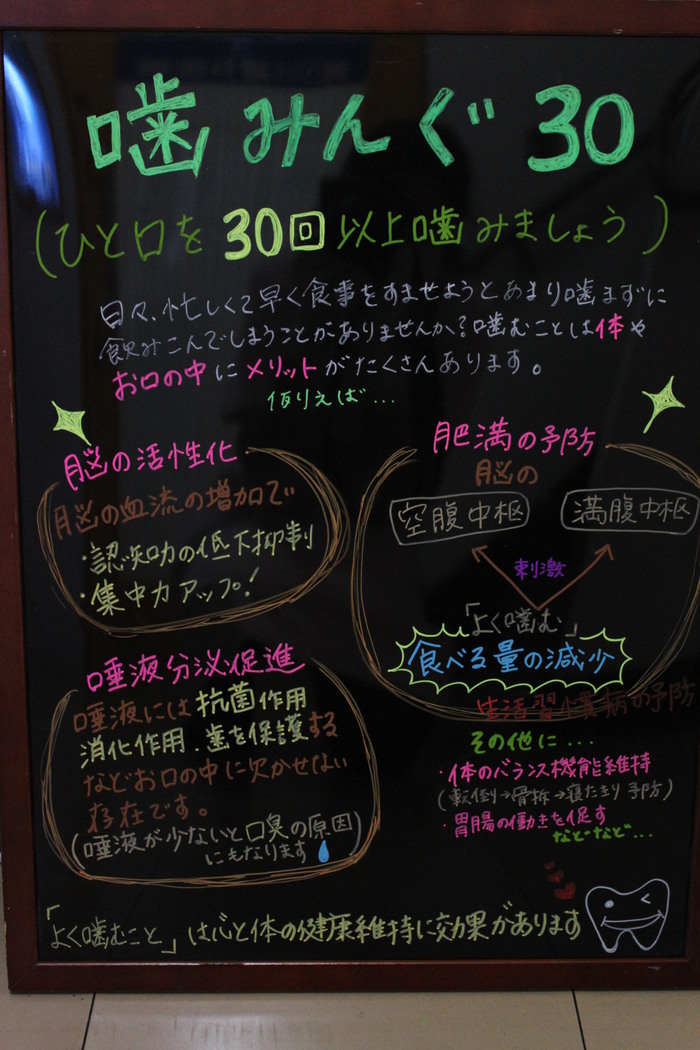 噛みんぐ30
(ひと口を30回以上噛みましょう)
日々、忙しくて早く食事をすませようとあまり噛まずに
飲みこんでしまうことがありませんか?噛むことは体や
お口の中にメリットがたくさんあります。
例えば…
脳の活性化
脳の血流の増加で
・認知力の低下抑制
・集中力アップ!
肥満の予防
脳の
空腹中枢 満腹中枢
刺激
「よく噛む」
食べる量の減少
生活習慣病の予防
唾液分泌促進
唾液には抗菌作用
消化作用.歯を保護する
などお口の中に欠かせない
存在です。
(唾液が少ないと口臭の原因
にもなります
その他に…
・体のバランス機能維持
(転倒→骨折→寝たきり予防)
・胃腸の働きを促す
などなど…
「よく噛むこと」は心と体の健康維持に効果があります